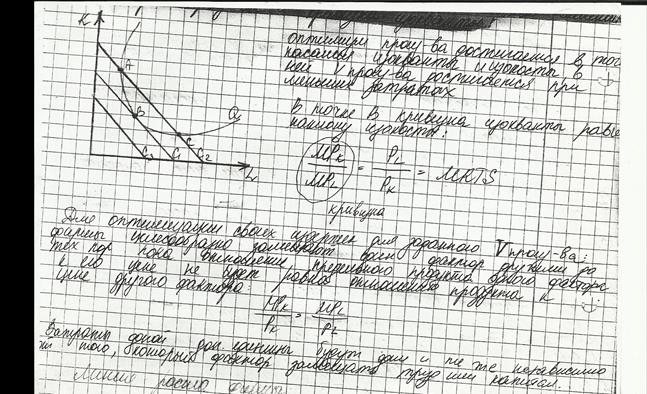 K
A
B
C
Q
C3
C1
C2
L
оптимум произ-ва достигается в точ
касания изокванты и изокосты, в
ней V произ-ва достигается при
меньших затратах
В точке В кривизна изокванты равн
наклону изокосты:
MPK / MPL = PL / PK = MRTS
кривизна
Для оптимизации своих издержек для заданного V произ-ва;
фирмы целесообразно заменяют один фактор другими до
тех пор пока отношение предельного продукта одного фактора
к его цене не будет равно отношению продукта к
цене другого фактора:
MPK / PK = MPL / PL
Затраты одной доп. единицы будут одни и те же независимо
от того, который фактор труд или капитал.
Линия роста фирмы